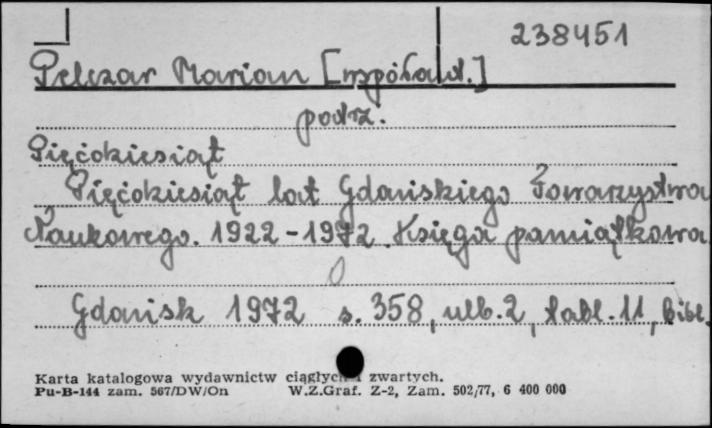 238451
Pelczar Marian [współaut.]
podrz.
Pięćdziesiąt
Pięćdziesiąt lat Gdańskiego Towarzystwa
Naukowego. 1922-1972. Księga pamiątkowa
Gdańsk 1972 s. 358, nlb. 2, tabl. 11, bibl.
Karta katalogowa wydawnictw ciągłych i zwartych.
Pu-B-144 zam. 567/DW/On W.Z.Graf. Z-2, Zam. 502/77, 6 400 000